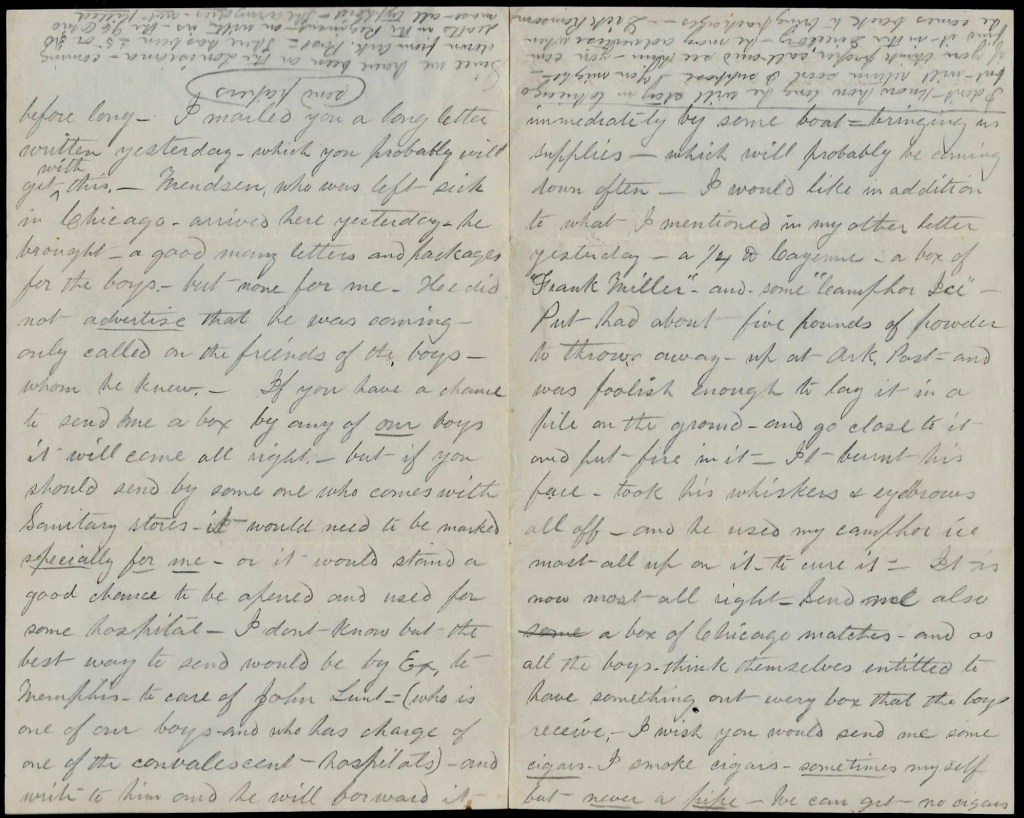 before long - I mailed you a long letter
written yesterday - which you probably will
get with this, - Mendsen, who was left sick
in Chicago - arrived here yesterday - he
brought - a good many letters and packages
for the boys - but none for me - He did
not advertise that he was coming -
only called on the freinds of the boys -
whom he knew. - If you have a chance
to send me a box by any of our boys
it will come all right. - but if you
should send by some one who comes with
Sanitary stores - it would need to be marked
specially for me - or it would stand a
good chance to be opened and used for
some hospital - I dont know but the
best way to send would be by Ex. to
Memphis - to care of John = (who is
one of our boys and who has charge of
one of the convalescent - hospitals) - and
write to him and he will forward it
immediately by some boat = bringing us
supplies - which will probably be coming
down often - I would like in addition
to what I mentioned in my other letter
yesterday - a 1/4 lb Cayenne - a box of
"Frank Miller" - and some "Camphor Ice" -
Put had about five pounds of powder
to throw away - up at Ark. Post - and
was foolish enough to lay it in a
pile on the ground - and go close to it
and put fire in it - It burnt his
face - took his whiskers & eyebrows
all off - and he used my camphor ice
most all up on it - to cure it = It is
now most all right - Send me also
some a box of Chicago matches - and as
all the boys think themselves entitled to
have something out every box that the boys
receive, - I wish you would send me some
cigars - I smoke cigars - sometimes myself
but never a pipe - We can get no cigars
I dont know how long he will stay in Chicago
but will return soon I suppose you might
if you think proper call and see him - you can
find it in the Directory - he may advertise when
he comes back to bring packages -
Since we have been on the Louisiana - coming
down from Ark Post = There has been 25 or 30
deaths in the Regiment on with us - the 96 Ohio
most all typhoid -
(send papers)